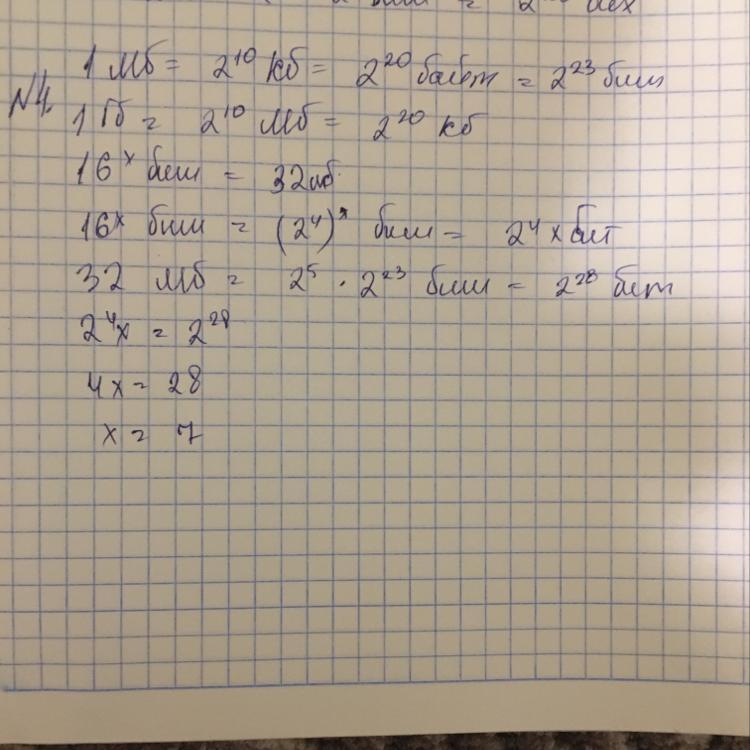 №4. 1 Мб = 2¹⁰ Кб = 2²⁰ байт = 2²³ бит
1 Гб = 2¹⁰ Мб = 2²⁰ Кб
16ˣ бит = 32 мб
16ˣ бит = (2⁴)ˣ бит = 2⁴ˣ бит
32 Мб = 2⁵ · 2²³ бит = 2²⁸ бит
2⁴ˣ = 2²⁸
4x = 28
x = 7